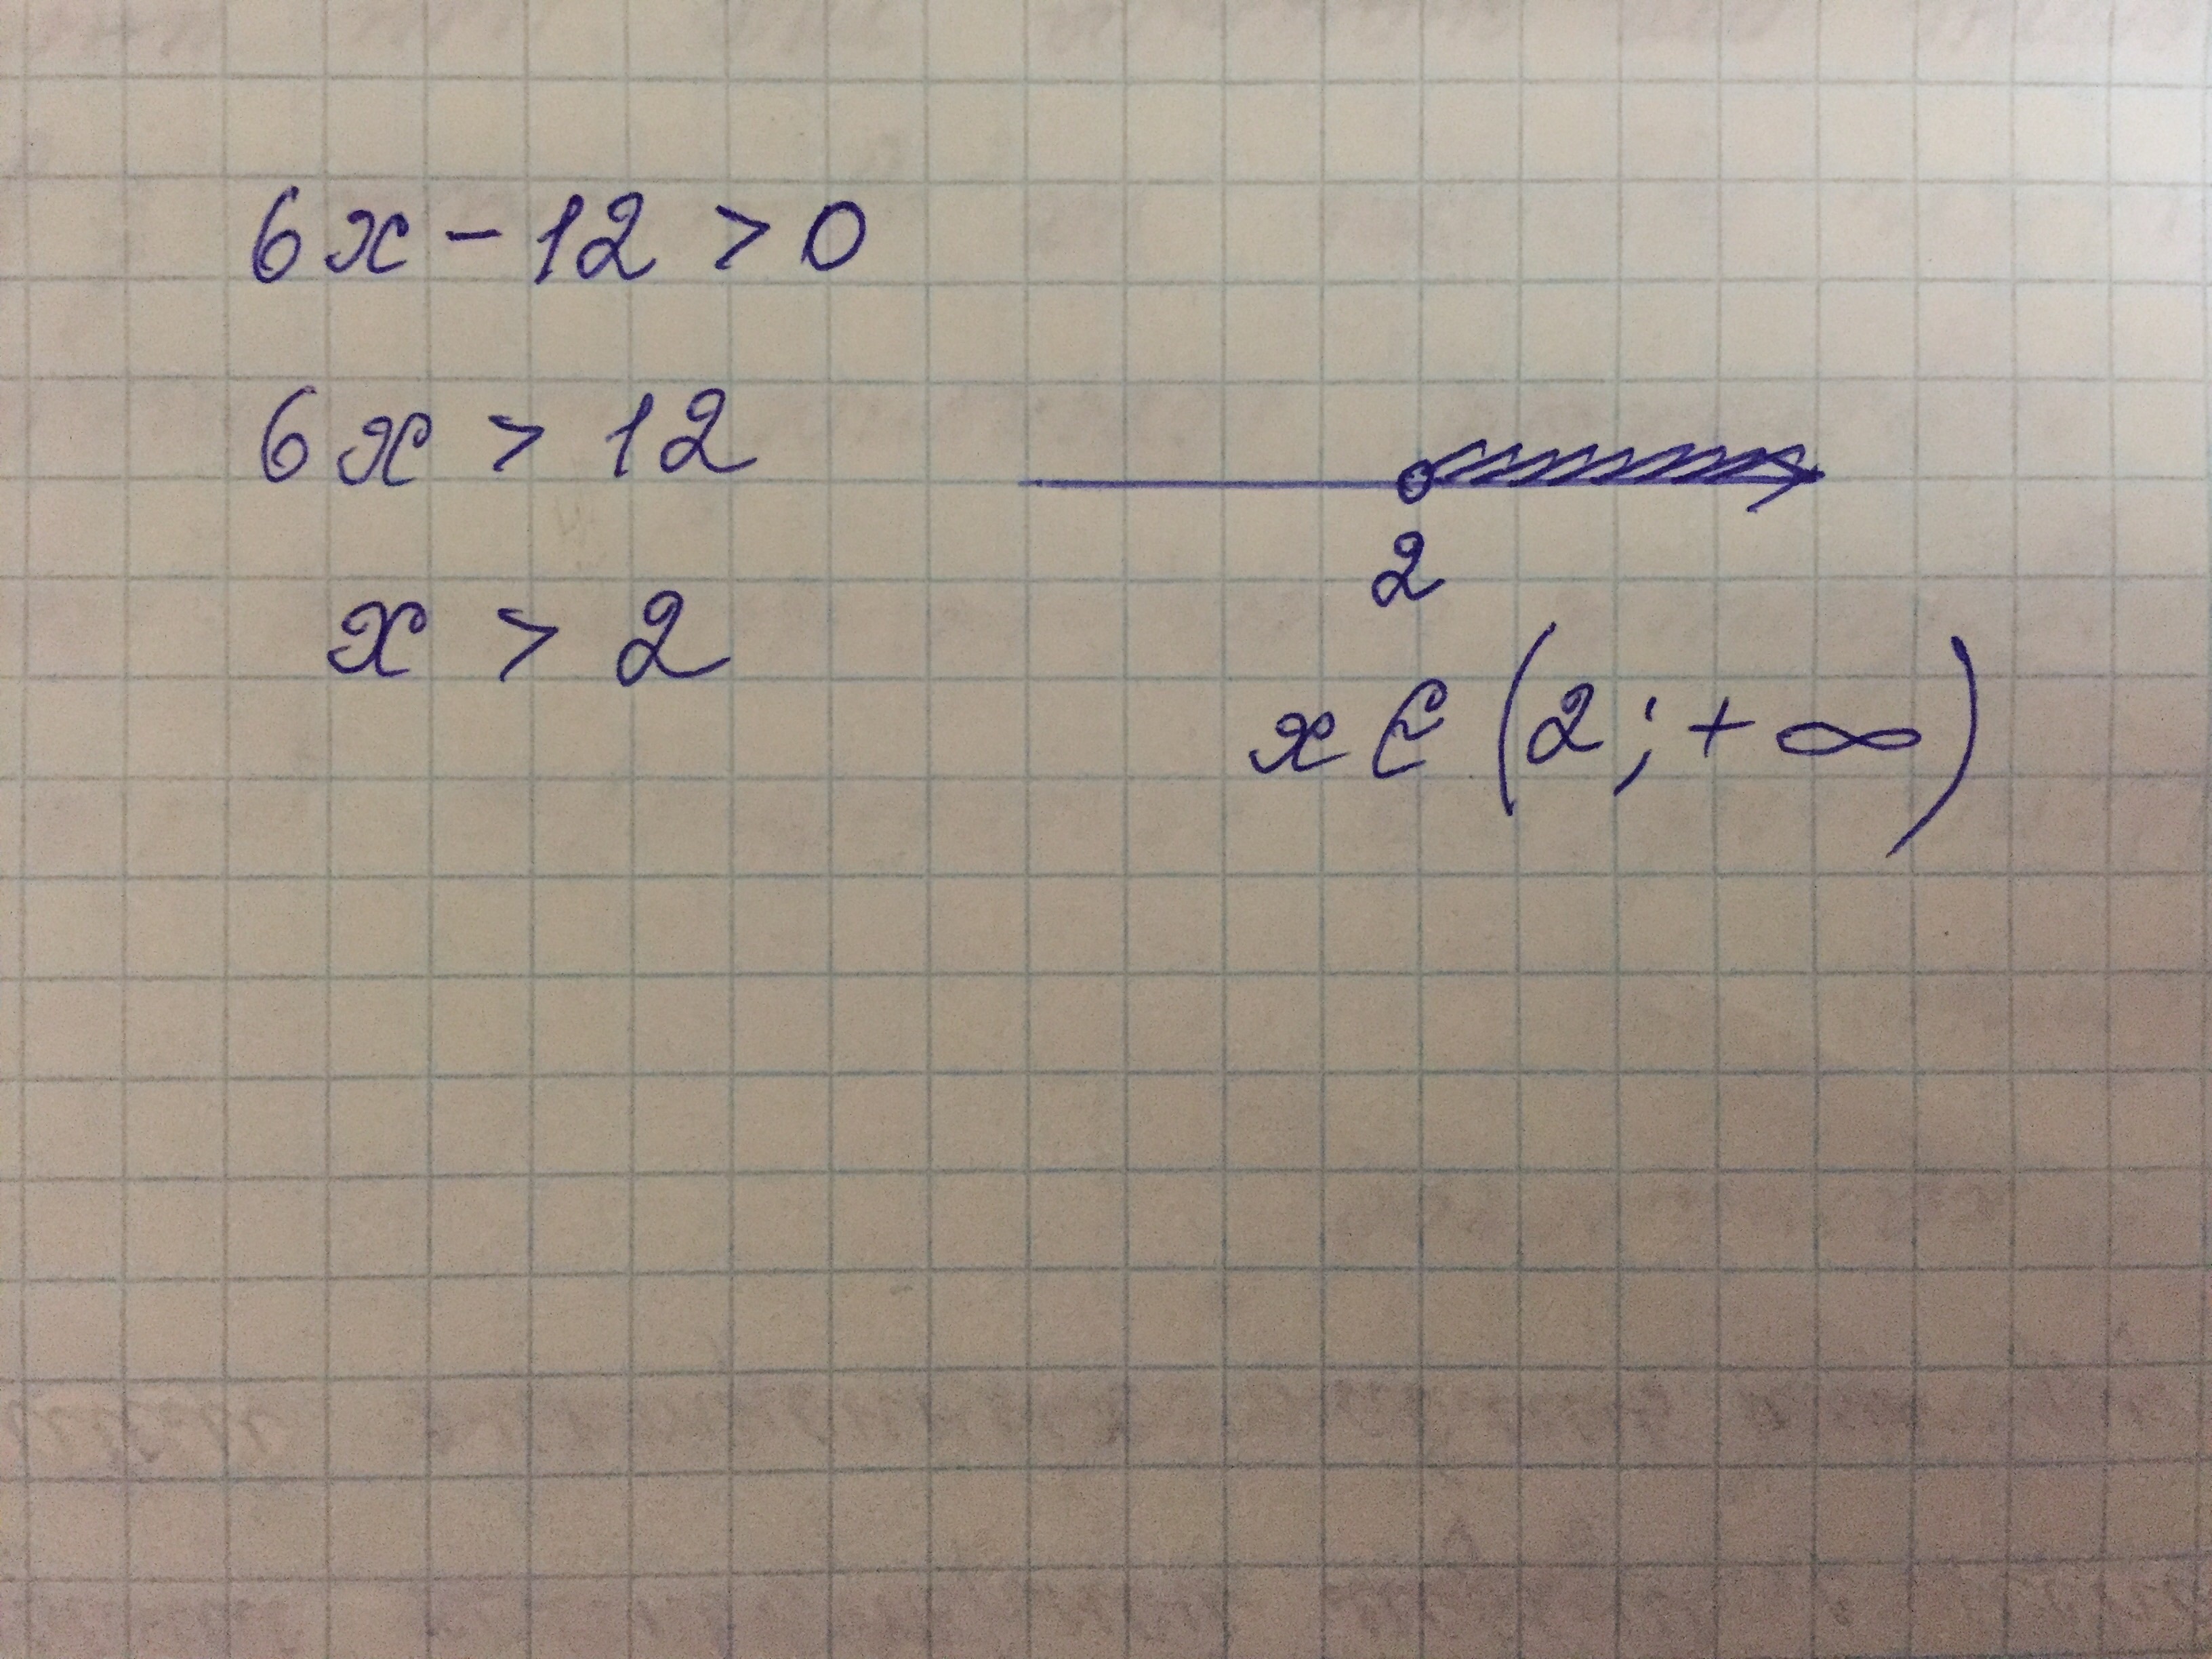 6x - 12 > 0
6x > 12
x > 2
2
x ∈ (2; + ∞)